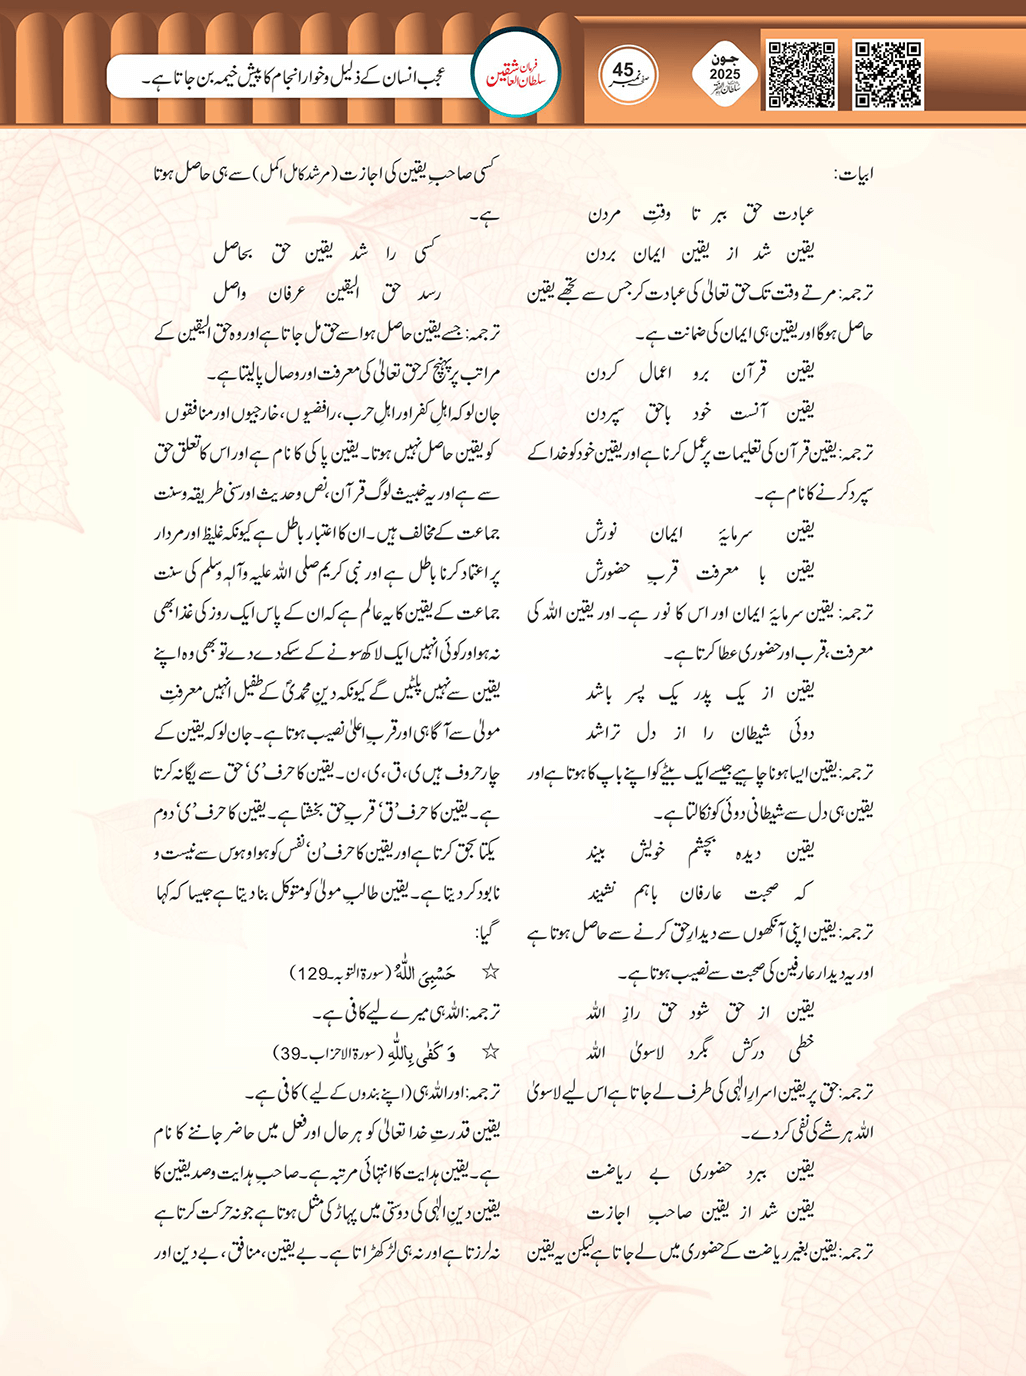 عجب انسان کے ذلیل و خوار انجام کا پیش خیمہ بن جاتا ہے۔
فرمان
سلطان العاشقین
صفحہ نمبر 45
جون
2025
ابیات:
عبادت حق ببر تا وقتِ مردن
یقین شد از یقین ایمان بردن
ترجمہ: مرتے وقت تک حق تعالیٰ کی عبادت کر جس سے تجھے یقین
حاصل ہوگا اور یقین ہی ایمان کی ضمانت ہے۔
یقین قرآن برو اعمال کردن
یقین آنست خود باحق سپردن
ترجمہ: یقین قرآن کی تعلیمات پر عمل کرنا ہے اور یقین خود کو خدا کے
سپرد کرنے کا نام ہے۔
یقین سرمایۂ ایمان نورش
یقین با معرفت قربِ حضورش
ترجمہ: یقین سرمایۂ ایمان اور اس کا نور ہے۔ اور یقین اللہ کی
معرفت، قرب اور حضوری عطا کرتا ہے۔
یقین از یک پدر یک پسر باشد
دوئی شیطان را از دل تراشد
ترجمہ: یقین ایسا ہونا چاہیے جیسے ایک بیٹے کو اپنے باپ کا ہوتا ہے اور
یقین ہی دل سے شیطانی دوئی کو نکالتا ہے۔
یقین دیدہ بچشم خویش بیند
کہ صحبت عارفان باہم نشیند
ترجمہ: یقین اپنی آنکھوں سے دیدارِ حق کرنے سے حاصل ہوتا ہے
اور یہ دیدار عارفین کی صحبت سے نصیب ہوتا ہے۔
یقین از حق شود حق رازِ اللہ
خطی درکش بگرد لاسویٰ اللہ
ترجمہ: حق پر یقین اسرارِ الٰہی کی طرف لے جاتا ہے اس لیے لاسویٰ
اللہ ہر شے کی نفی کر دے۔
یقین ببرد حضوری بے ریاضت
یقین شد از یقین صاحبِ اجازت
ترجمہ: یقین بغیر ریاضت کے حضوری میں لے جاتا ہے لیکن یہ یقین
کسی صاحبِ یقین کی اجازت (مرشد کامل اکمل) سے ہی حاصل ہوتا
ہے۔
کسی را شد یقین حق بحاصل
رسد حق الیقین عرفان واصل
ترجمہ: جسے یقین حاصل ہوا سے حق مل جاتا ہے اور وہ حق الیقین کے
مراتب پر پہنچ کر حق تعالیٰ کی معرفت اور وصال پا لیتا ہے۔
جان لو کہ اہلِ کفر اور اہلِ حرب، رافضیوں، خارجیوں اور منافقوں
کو یقین حاصل نہیں ہوتا۔ یقین پاکی کا نام ہے اور اس کا تعلق حق
سے ہے اور یہ خبیث لوگ قرآن، نص و حدیث اور سنی طریقہ و سنت
جماعت کے مخالف ہیں۔ ان کا اعتبار باطل ہے کیونکہ غلیظ اور مردار
پر اعتماد کرنا باطل ہے اور نبی کریم صلی اللہ علیہ وآلہٖ وسلم کی سنت
جماعت کے یقین کا یہ عالم ہے کہ ان کے پاس ایک روز کی غذا بھی
نہ ہو اور کوئی انہیں ایک لاکھ سونے کے سکے دے دے تو بھی وہ اپنے
یقین سے نہیں پلٹیں گے کیونکہ دینِ محمدیؐ کے طفیل انہیں معرفتِ
مولیٰ سے آگاہی اور قربِ اعلیٰ نصیب ہوتا ہے۔ جان لو کہ یقین کے
چار حروف ہیں ی، ق، ی، ن۔ یقین کا حرف ’ی‘ حق سے یگانہ کرتا
ہے۔ یقین کا حرف ’ق‘ قربِ حق بخشتا ہے۔ یقین کا حرف ’ی‘ دوم
یکتا بحق کرتا ہے اور یقین کا حرف ’ن‘ نفس کو ہوا و ہوس سے نیست و
نابود کر دیتا ہے۔ یقین طالبِ مولیٰ کو متوکل بنا دیتا ہے جیسا کہ کہا
گیا:
☆ حَسْبِیَ اللّٰهُ (سورۃ التوبہ۔129)
ترجمہ: اللہ ہی میرے لیے کافی ہے۔
☆ وَ کَفٰی بِاللّٰهِ (سورۃ الاحزاب۔39)
ترجمہ: اور اللہ ہی (اپنے بندوں کے لیے) کافی ہے۔
یقین قدرتِ خدا تعالیٰ کو ہر حال اور فعل میں حاضر جاننے کا نام
ہے۔ یقین ہدایت کا انتہائی مرتبہ ہے۔ صاحبِ ہدایت و صدیقین کا
یقین دینِ الٰہی کی دوستی میں پہاڑ کی مثل ہوتا ہے جو نہ حرکت کرتا ہے
نہ لرزتا ہے اور نہ ہی لڑکھڑاتا ہے۔ بے یقین، منافق، بے دین اور